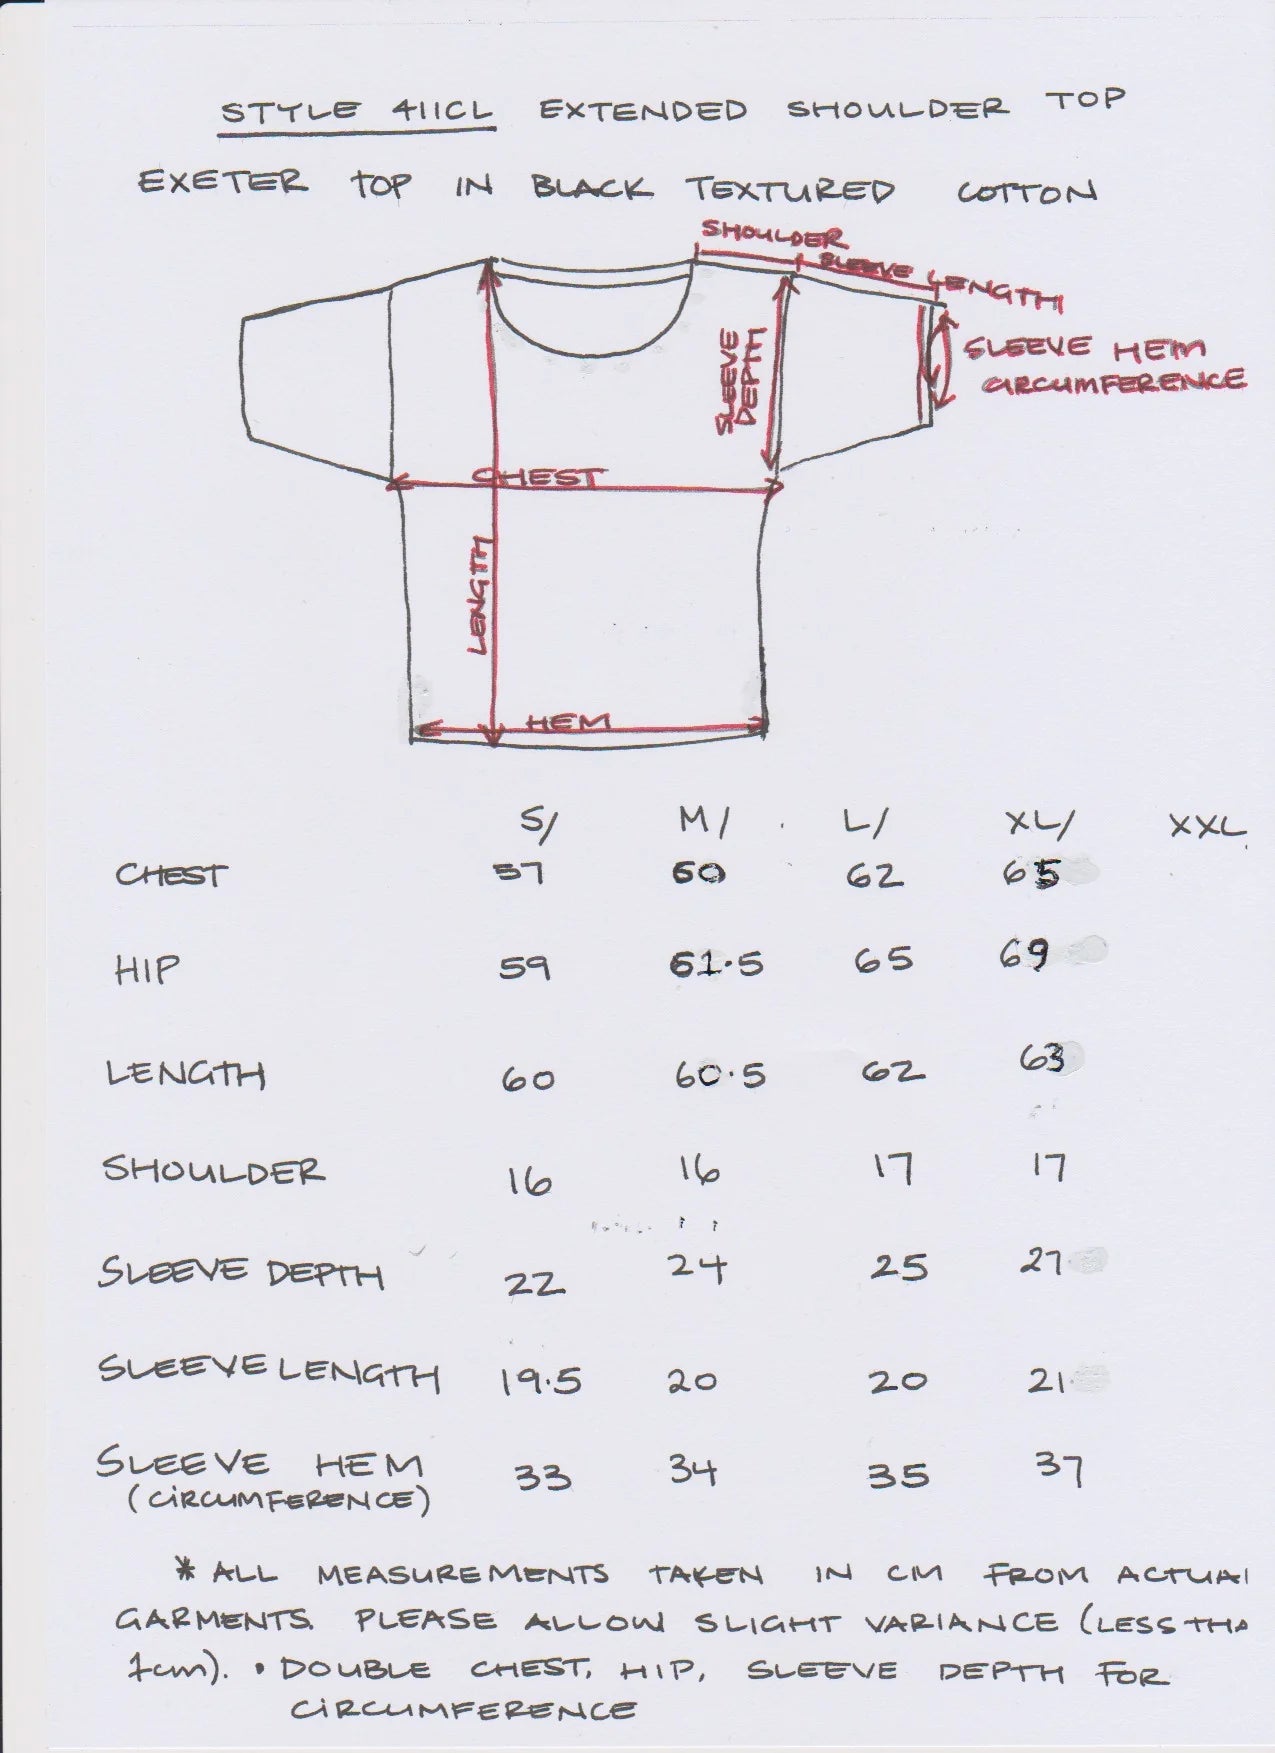 STYLE 411CL EXTENDED SHOULDER TOP
EXETER TOP IN BLACK TEXTURED COTTON
SHOULDER
SLEEVE LENGTH
SLEEVE HEM
CIRCUMFERENCE
SLEEVE
DEPTH
CHEST
LENGTH
HEM
S/ M/ L/ XL/ XXL
CHEST 57 60 62 65
HIP 59 61.5 65 69
LENGTH 60 60.5 62 63
SHOULDER 16 16 17 17
SLEEVE DEPTH 22 24 25 27
SLEEVE LENGTH 19.5 20 20 21
SLEEVE HEM 33 34 35 37
(CIRCUMFERENCE)
* ALL MEASUREMENTS TAKEN IN CM FROM ACTUAL
GARMENTS. PLEASE ALLOW SLIGHT VARIANCE (LESS THA
1cm). • DOUBLE CHEST, HIP, SLEEVE DEPTH FOR
CIRCUMFERENCE